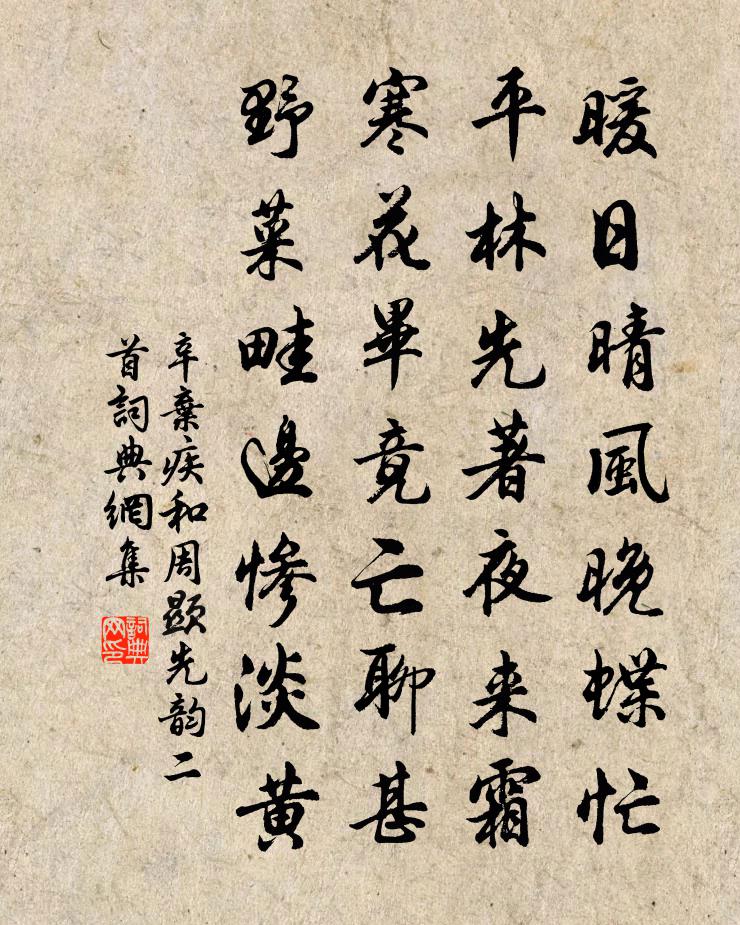 暖日晴風晚蝶忙
平林先著夜来霜
寒花畢竟亡聊甚
野菜畦邊慘淡黄
辛棄疾和周顯先韵二
首詞典網集
詞典
网印